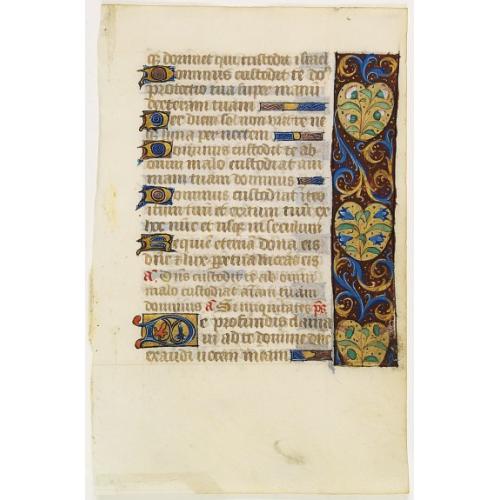 qz dormiet qui custodit israel
Dominus custodit te do
protectio tua super manum
dexteram tuam
Per diem sol non uret te ne
luna per noctem
Dominus custodit te ab
omni malo custodiat ani
mam tuam dominus
Dominus custodiat intro
itum tuum et exitum tuum ex
hoc nunc et usque in seculum
Requiem eternam dona eis
dne et lux perpetua luceat eis
a Dns custodit te ab omni
malo custodiat animam tuam
dominus a Si iniquitates ps
De profundis clama
ui ad te domine dne
exaudi uocem meam